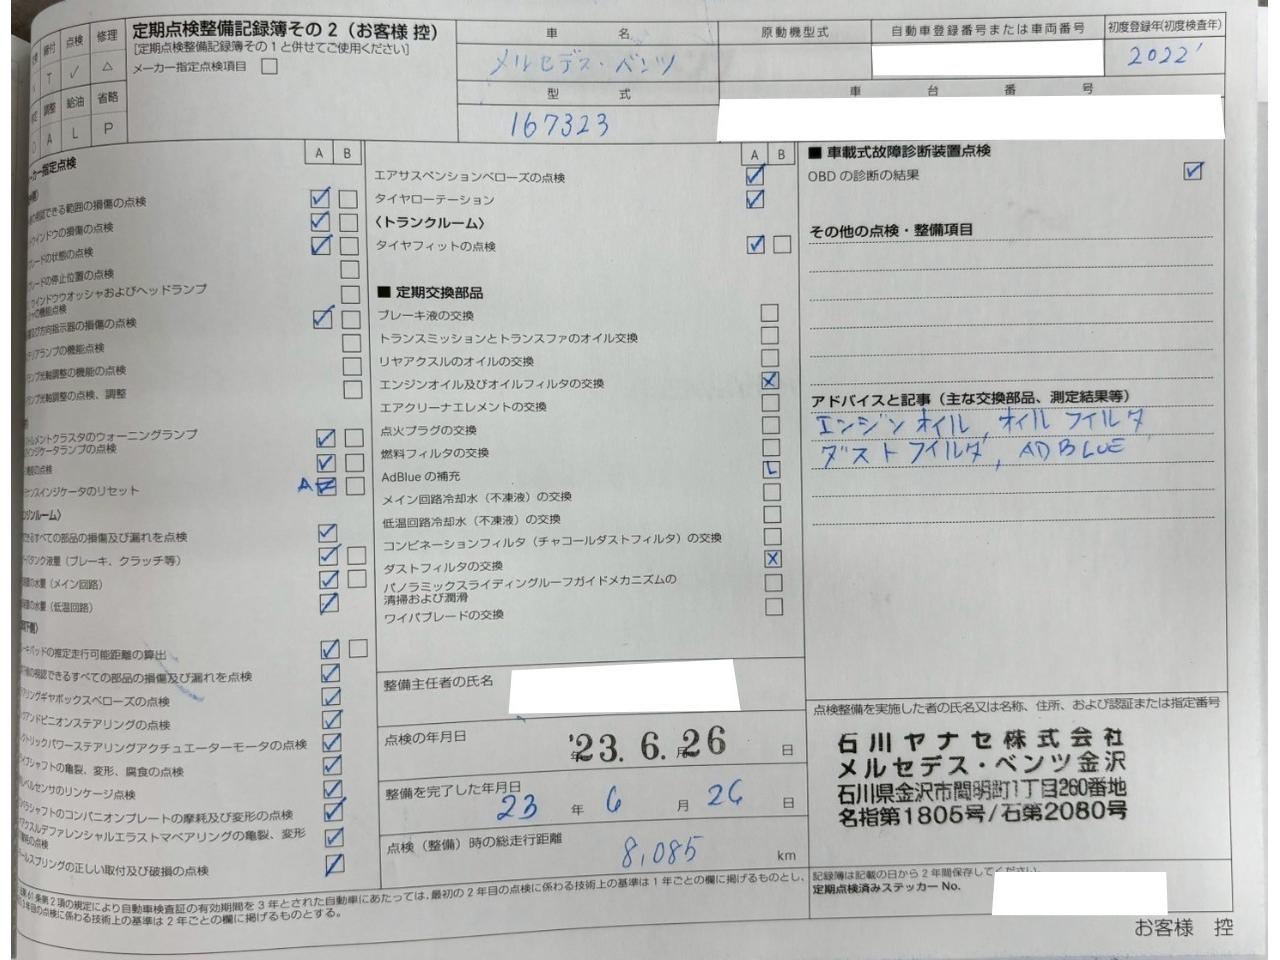 締付 点検 修理
T ✓ △
調整 給油 省略
A L P
定期点検整備記録簿その2(お客様 控)
[定期点検整備記録簿その1と併せてご使用ください]
メーカー指定点検項目 □
車 名
メルセデス・ベンツ
原動機型式
自動車登録番号または車両番号
初度登録年(初度検査年)
2022
型 式
167323
車 台 番 号
A B
カー指定点検
できる範囲の損傷の点検
ウインドウの損傷の点検
レードの状態の点検
レードの停止位置の点検
ウインドウウオッシャおよびヘッドランプ
の機能点検
び方向指示器の損傷の点検
テリアランプの機能点検
ンプ光軸調整の機能の点検
ンプ光軸調整の点検、調整
トルメントクラスタのウォーニングランプ
インジケータランプの点検
の点検
ンスインジケータのリセット
ンジンルーム〉
きるすべての部品の損傷及び漏れを点検
タンク液量(ブレーキ、クラッチ等)
の水量(メイン回路)
の水量(低温回路)
下側〉
ーキパッドの推定走行可能距離の算出
の視認できるすべての部品の損傷及び漏れを点検
リングギヤボックスベローズの点検
アンドピニオンステアリングの点検
クトリックパワーステアリングアクチュエーターモータの点検
イブシャフトの亀裂、変形、腐食の点検
レベルセンサのリンケージ点検
ペラシャフトのコンパニオンプレートの摩耗及び変形の点検
アクスルデファレンシャルエラストマベアリングの亀裂、変形
の点検
ールスプリングの正しい取付及び破損の点検
A B
エアサスペンションベローズの点検
タイヤローテーション
〈トランクルーム〉
タイヤフィットの点検
■ 定期交換部品
ブレーキ液の交換
トランスミッションとトランスファのオイル交換
リヤアクスルのオイルの交換
エンジンオイル及びオイルフィルタの交換 X
エアクリーナエレメントの交換
点火プラグの交換
燃料フィルタの交換
AdBlue の補充 L
メイン回路冷却水(不凍液)の交換
低温回路冷却水(不凍液)の交換
コンビネーションフィルタ(チャコールダストフィルタ)の交換
ダストフィルタの交換 X
パノラミックスライディングルーフガイドメカニズムの
清掃および潤滑
ワイパブレードの交換
整備主任者の氏名
点検の年月日 '23. 6. 26 日
整備を完了した年月日
23 年 6 月 26 日
点検(整備)時の総走行距離
8,085 km
■ 車載式故障診断装置点検
OBD の診断の結果
その他の点検・整備項目
アドバイスと記事(主な交換部品、測定結果等)
エンジンオイル, オイルフィルタ
ダストフィルタ, ADBLUE
点検整備を実施した者の氏名又は名称、住所、および認証または指定番号
石川ヤナセ株式会社
メルセデス・ベンツ金沢
石川県金沢市間明町1丁目260番地
名指第1805号/石第2080号
記録簿は記載の日から2年間保存してください。
定期点検済みステッカー No.
条第2項の規定により自動車検査証の有効期間を3年とされた自動車にあたっては、最初の2年目の点検に係わる技術上の基準は1年ごとの欄に掲げるものとし、
年目の点検に係わる技術上の基準は2年ごとの欄に掲げるものとする。
お客様 控